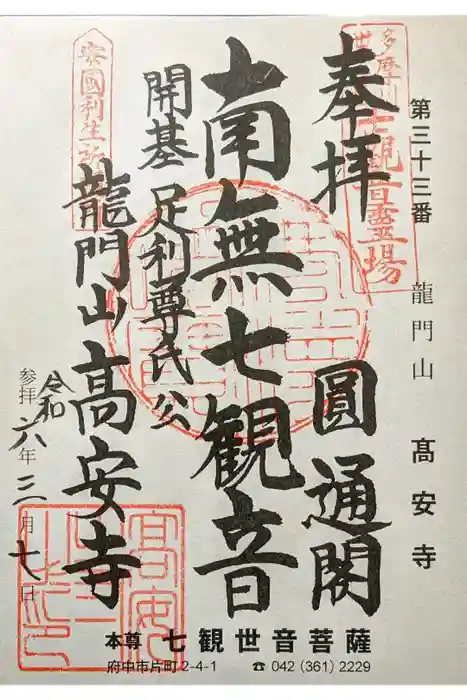 第三十三番 龍門山 髙安寺
奉拝 圓通閣
南無七観音
開基 足利尊氏公
龍門山 髙安寺
参拝 令和六年三月七日
安國利生所
本尊 七観世音菩薩
府中市片町2-4-1 ☎ 042 (361) 2229